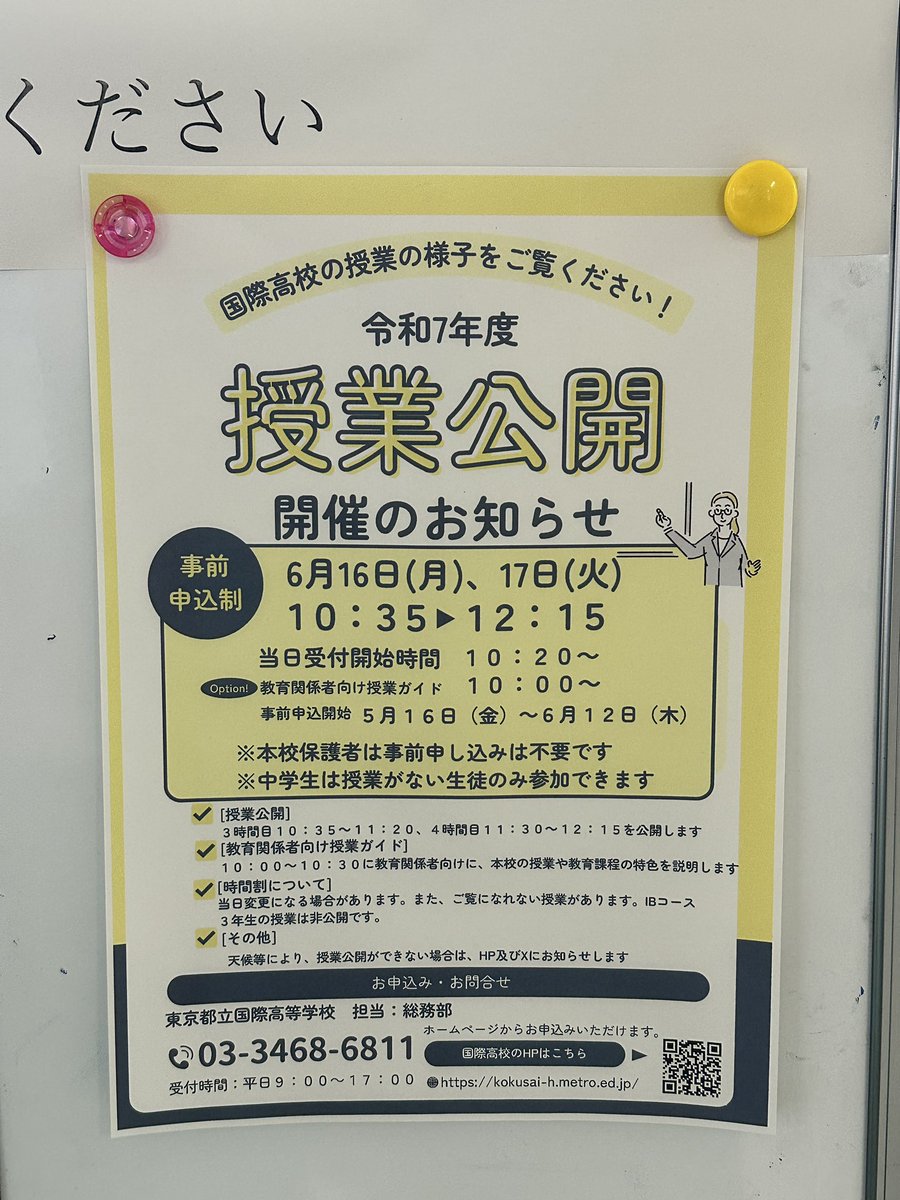 ください
国際高校の授業の様子をご覧ください！
令和7年度
授業公開
開催のお知らせ
事前
申込制
6月16日(月)、17日(火)
10：35▶12：15
当日受付開始時間　10：20～
Option! 教育関係者向け授業ガイド　10：00～
事前申込開始　5月16日（金）～6月12日（木）
※本校保護者は事前申し込みは不要です
※中学生は授業がない生徒のみ参加できます
[授業公開]
３時間目１０：３５～１１：２０、４時間目１１：３０～１２：１５を公開します
[教育関係者向け授業ガイド]
１０：００～１０：３０に教育関係者向けに、本校の授業や教育課程の特色を説明します
[時間割について]
当日変更になる場合があります。また、ご覧になれない授業があります。IBコース
３年生の授業は非公開です。
[その他]
天候等により、授業公開ができない場合は、HP及びXにお知らせします
お申込み・お問合せ
東京都立国際高等学校　担当：総務部
ホームページからお申込みいただけます。
03-3468-6811
国際高校のHPはこちら
受付時間：平日９：００～１７：００
https://kokusai-h.metro.ed.jp/